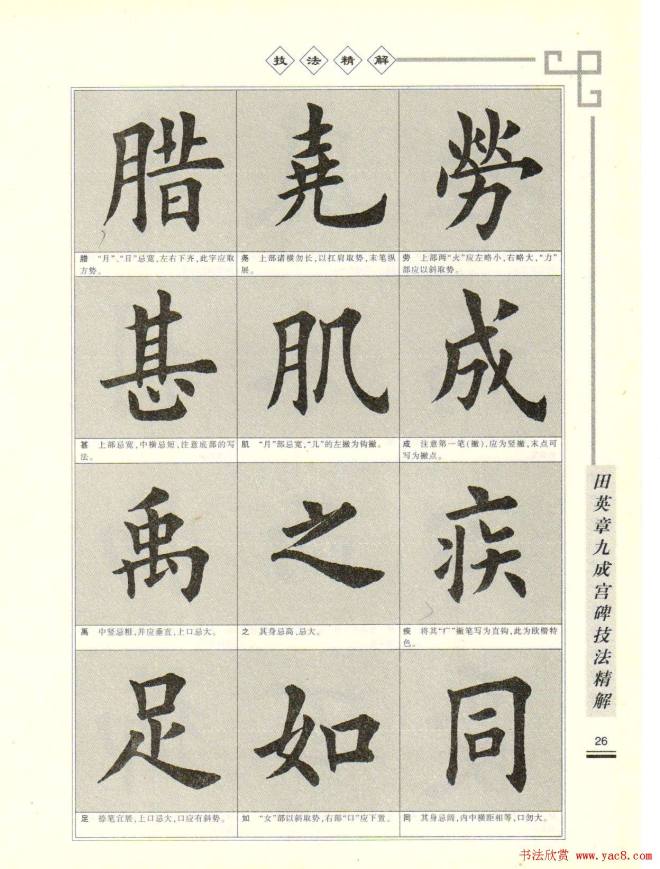 技法精解
腊
堯
勞
腊 “月”、“日”忌宽,左右下齐,此字应取
方势。
尧 上部诸横勿长,以扛肩取势,末笔纵
展。
劳 上部两“火”应左略小,右略大,“力”
部应以斜取势。
甚
肌
成
甚 上部忌宽,中横忌短,注意底部的写
法。
肌 “月”部忌宽,“几”的左撇为钩撇。
成 注意第一笔(撇),应为竖撇,末点可
写为撇点。
禹
之
疾
禹 中竖忌粗,并应垂直,上口忌大。
之 其身忌高、忌大。
疾 将其“疒”撇笔写为直钩,此为欧楷特
色。
足
如
同
足 捺笔宜展,上口忌大,口应有斜势。
如 “女”部以斜取势,右部“口”应下置。
同 其身忌阔,内中横距相等,口勿大。
田英章九成宫碑技法精解
26
书法欣赏 www.yac8.com